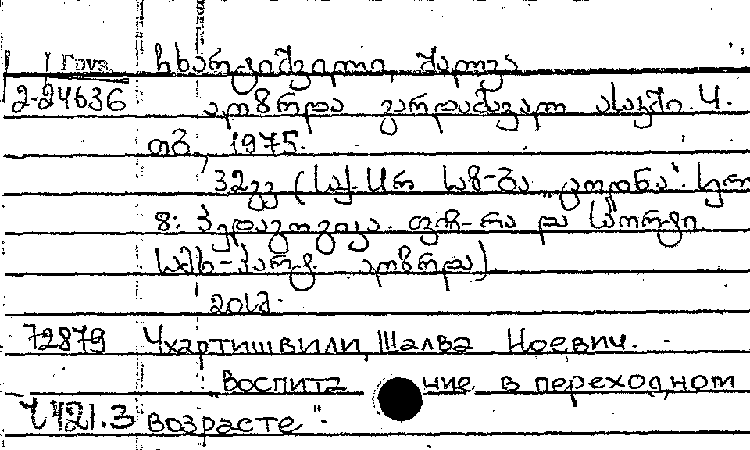 Груз. ჩხარტიშვილი, შალვა
2-24636 აღზრდა გარდამავალ ასაკში. Ч.
თბ., 1975.
32გვ (საქ. სსრ საზ-ბა „ცოდნა“. სერია
8: პედაგოგიკა. ფიზ-რა და სპორტი
აღზრდა)
20კპ.
72879 Чхартишвили, Шалва Ноевич.
„Воспитание в переходном
Ч 421.3 возрасте".